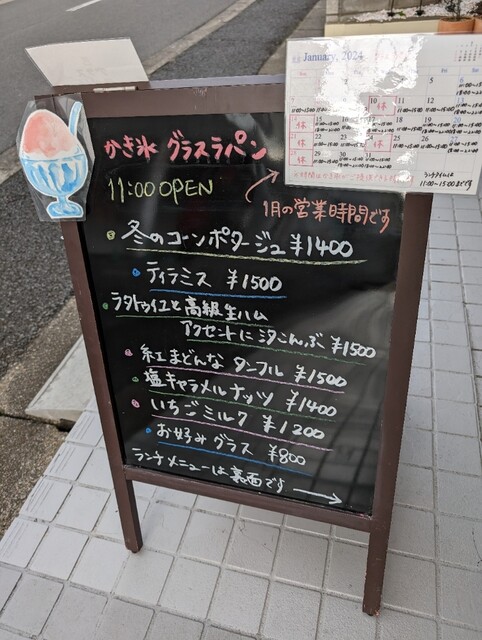 January, 2024
かき氷 グラスラパン
11:00 OPEN
1月の営業時間です
冬のコーンポタージュ ¥1400
ティラミス ¥1500
ラタトゥイユと高級生ハム
アクセントに汐こんぶ ¥1500
紅まどんな タンフル ¥1500
塩キャラメルナッツ ¥1400
いちごミルク ¥1200
お好みグラス ¥800
ランチメニューは裏面です
ランチタイムは
11:00~15:00までです